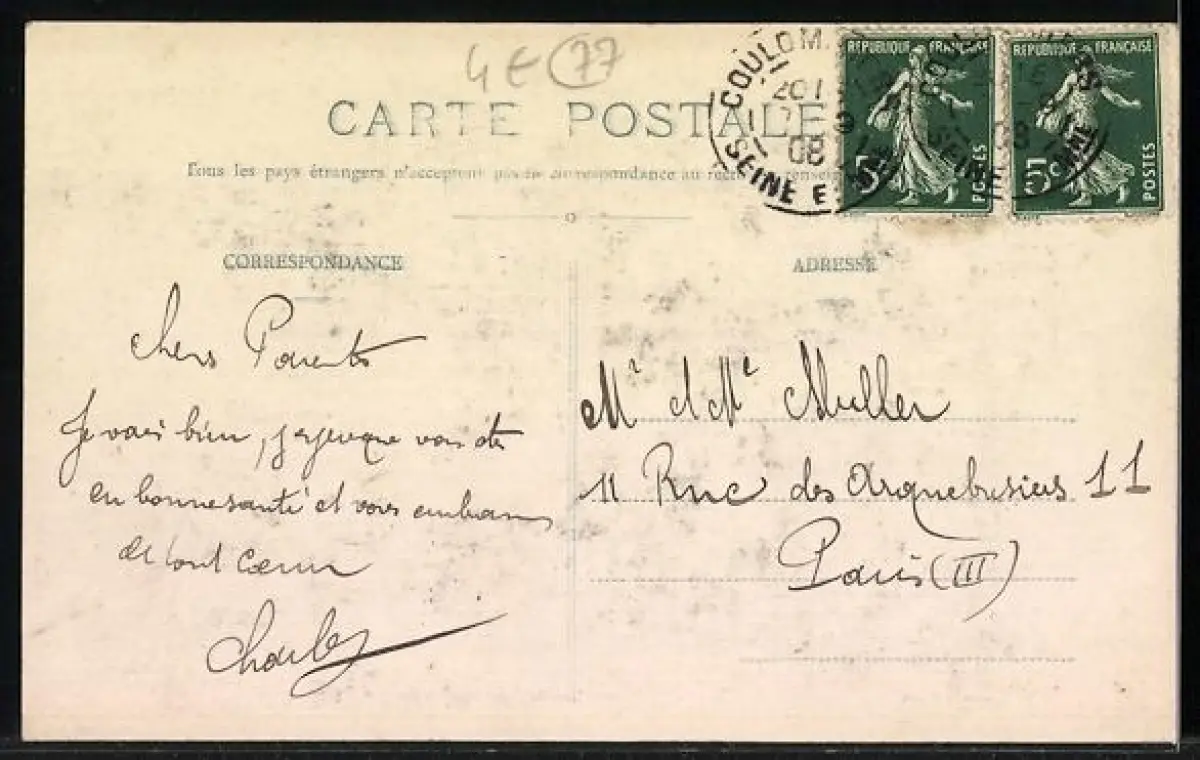 4E (77)
CARTE POSTALE
Tous les pays étrangers n'acceptent pas la correspondance au recto
CORRESPONDANCE
Chers Parents
Je vais bien, j'espère que vous êtes
en bonne santé et vous embrasse
de tout Coeur
Charles
COULOM
08
SEINE E MARNE
RÉPUBLIQUE FRANÇAISE
5c
POSTES
RÉPUBLIQUE FRANÇAISE
5c
POSTES
ADRESSE
Mr et Me Muller
11 Rue des Arquebusiers 11
Paris (III)